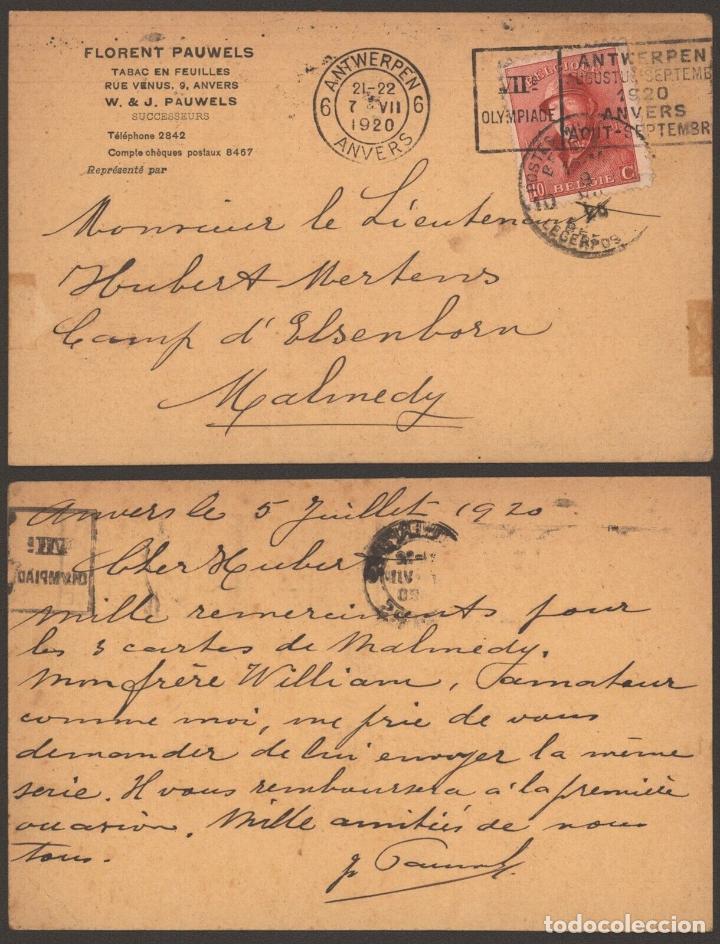 FLORENT PAUWELS
TABAC EN FEUILLES
RUE VÉNUS, 9, ANVERS
W. & J. PAUWELS
SUCCESSEURS
Téléphone 2842
Compte chèques postaux 8467
Représenté par
ANTWERPEN
21-22
6 7 VII 6
1920
ANVERS
VIIe
OLYMPIADE
ANTWERPEN
AUGUSTUS-SEPTEMB
1920
ANVERS
AOUT-SEPTEMBR
BELGIQUE
10 BELGIE C
LEGERPOS
Monsieur le Lieutenant
Hubert Mertens
Camp d'Elsenborn
Malmedy
Anvers le 5 Juillet 1920
Cher Hubert
Mille remerciments pour
les 3 cartes de Malmedy.
Mon frère William, amateur
comme moi, me prie de vous
demander de lui envoyer la même
serie. Il vous remboursera à la première
occasion. Mille amitiés de nous
tous.
VIIe
OLYMPIAD
todocoleccion.net